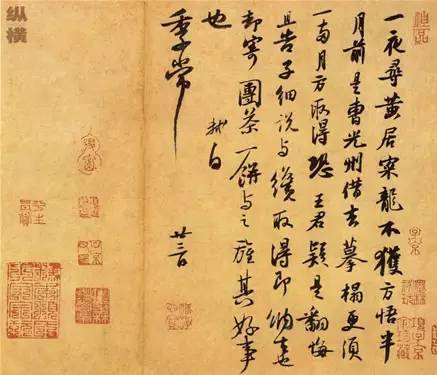 一夜尋黃居寀龍不獲方悟半
月前是曹光州借去摹搨更須
一兩月方取得恐王君疑是翻悔
且告子細說與纔取得即納去也
却寄團茶一餅與之旌其好事
也
軾白
季常
廿三日
纵横